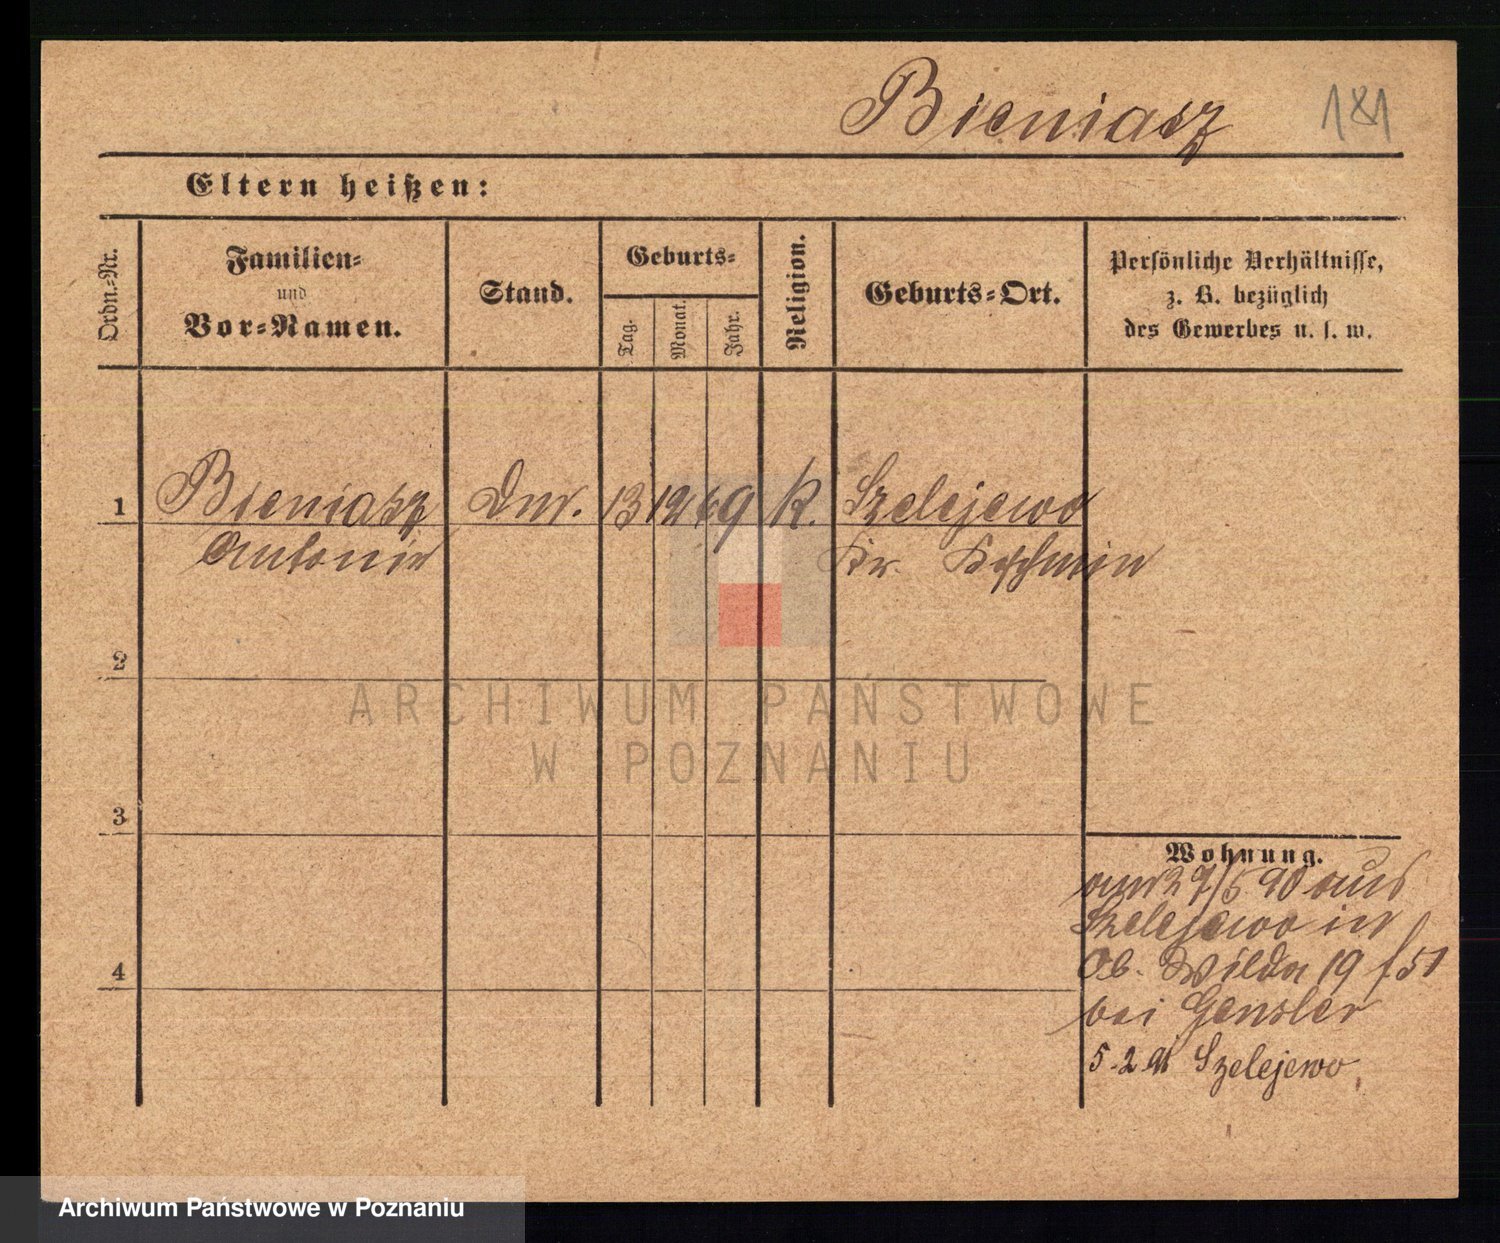 Bieniasz 181
Eltern heißen:
Ordn.-Nr.
Familien-
und
Vor-Namen.
Stand.
Geburts-
Tag.
Monat.
Jahr.
Religion.
Geburts-Ort.
Persönliche Verhältnisse,
z. B. bezüglich
des Gewerbes u. s. w.
1 Bieniasz 13 12 69 K. Szelejewo
Antonie Kr. Koschmin
2
3
4
Wohnung.
am 27/5 90 aus
Szelejewo in
Ob. Wilda 19 f 51
bei Gensler
5.2.91 Szelejewo
ARCHIWUM PAŃSTWOWE
W POZNANIU
Archiwum Państwowe w Poznaniu